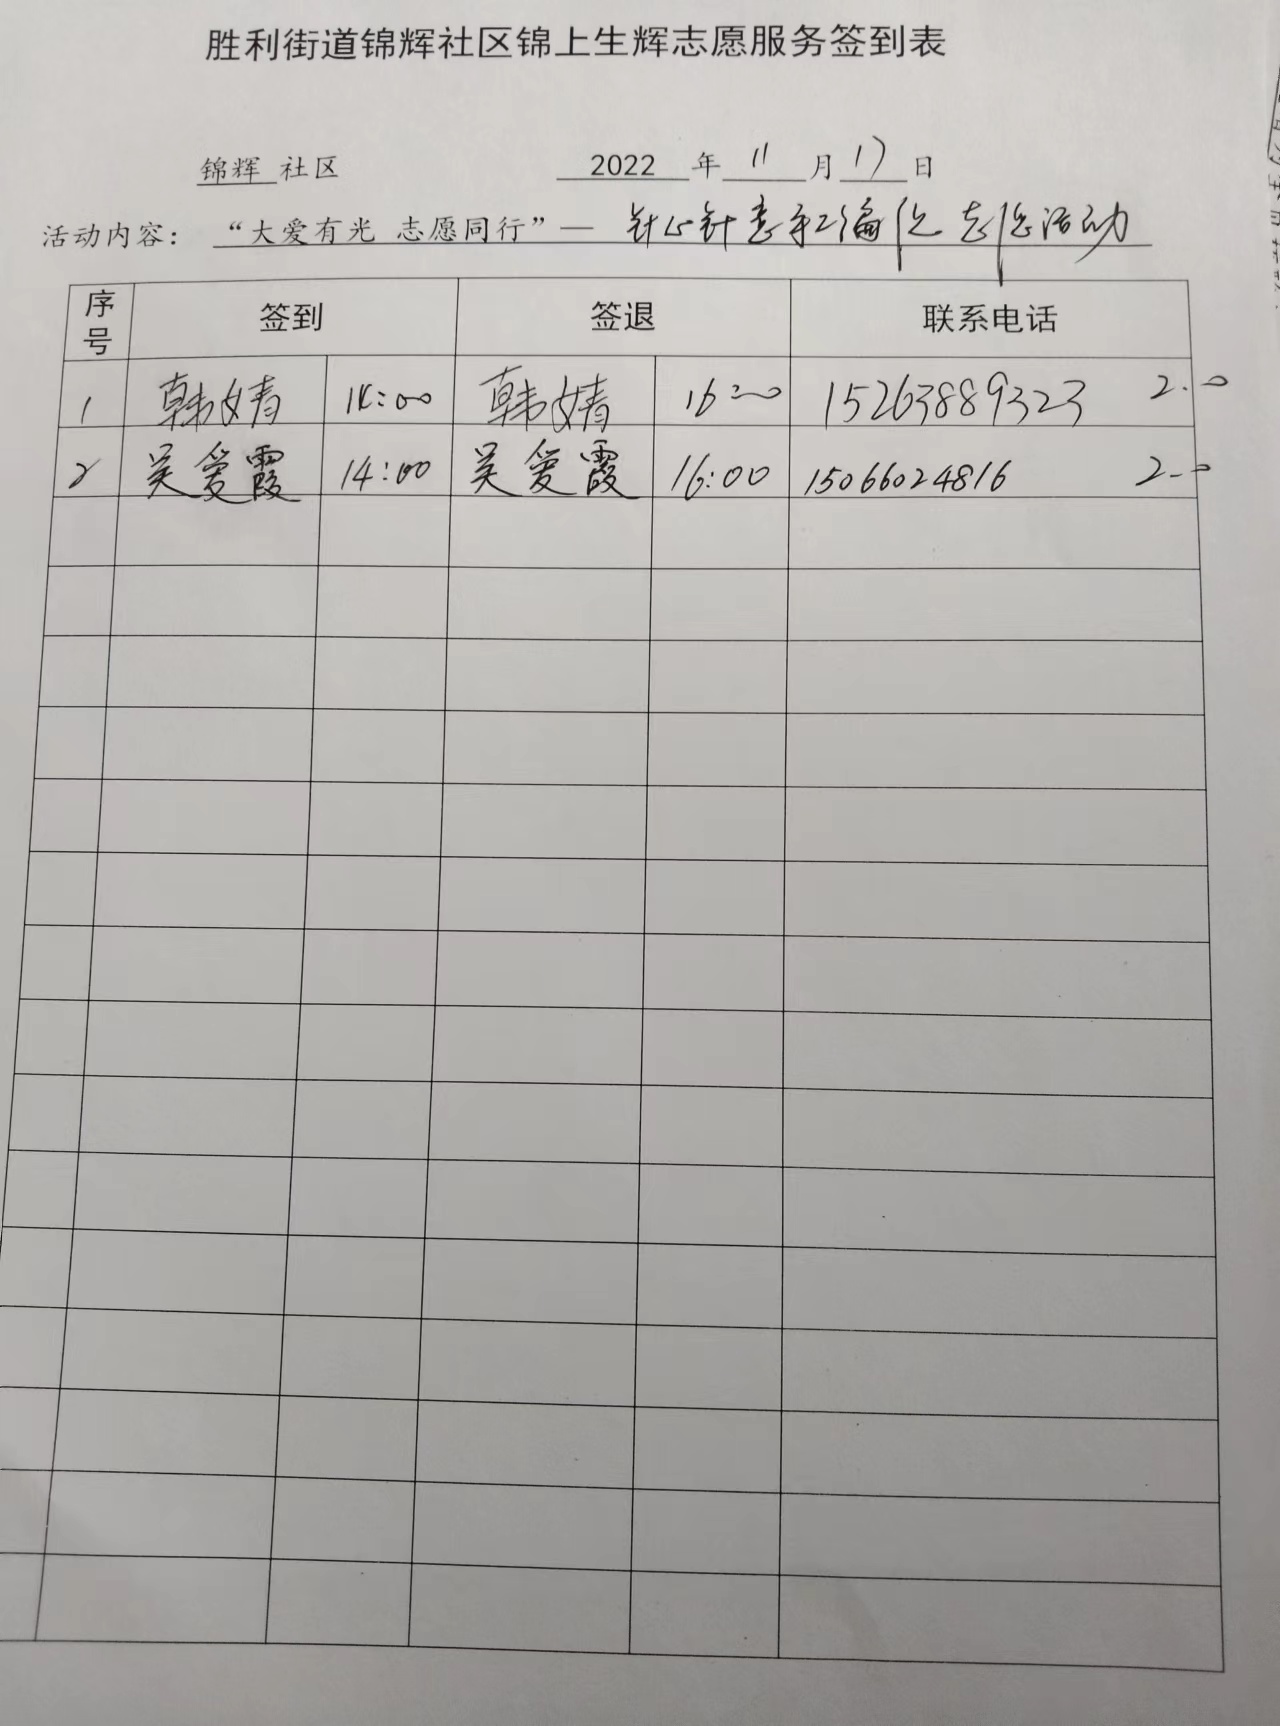 胜利街道锦辉社区锦上生辉志愿服务签到表
锦辉 社区 2022 年 11 月 17 日
活动内容： “大爱有光 志愿同行”— 针心针意手工编织志愿活动
序号 签到 签退 联系电话
1 韩婧 14:00 韩婧 16:00 15263889323 2.0
2 吴爱霞 14:00 吴爱霞 16:00 15066024816 2.0